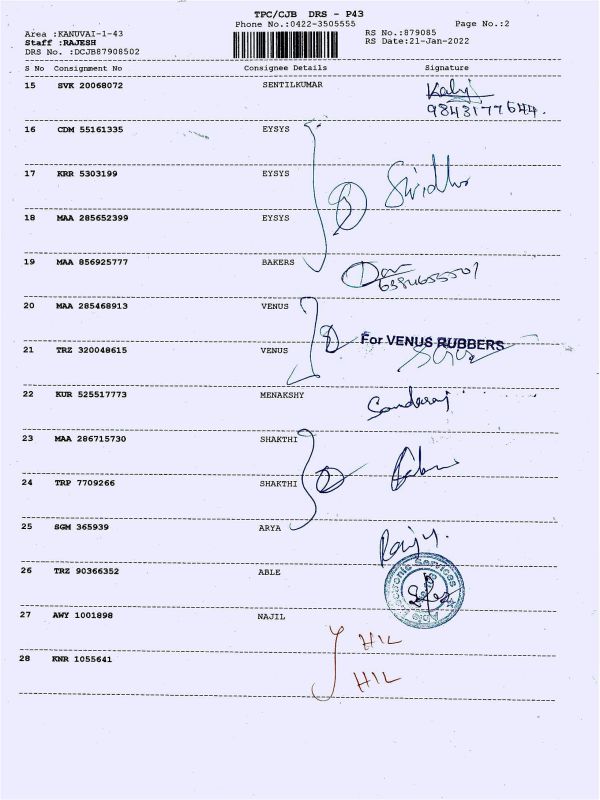 TPC/CJB DRS - P43
Phone No.:0422-3505555
Page No.:2
Area :KANUVAI-1-43
RS No.:879085
Staff :RAJESH
RS Date:21-Jan-2022
DRS No. :DCJB87908502
S No Consignment No Consignee Details Signature
15 SVK 20068072 SENTILKUMAR
9843177644.
16 CDM 55161335 EYSYS
17 KRR 5303199 EYSYS
Sridhar
18 MAA 285652399 EYSYS
19 MAA 856925777 BAKERS
20 MAA 285468913 VENUS
For VENUS RUBBERS
21 TRZ 320048615 VENUS
22 KUR 525517773 MENAKSHY
23 MAA 286715730 SHAKTHI
24 TRP 7709266 SHAKTHI
25 SGM 365939 ARYA
26 TRZ 90366352 ABLE
Able Electronic Services
27 AWY 1001898 NAJIL
HIL
28 KNR 1055641
HIL